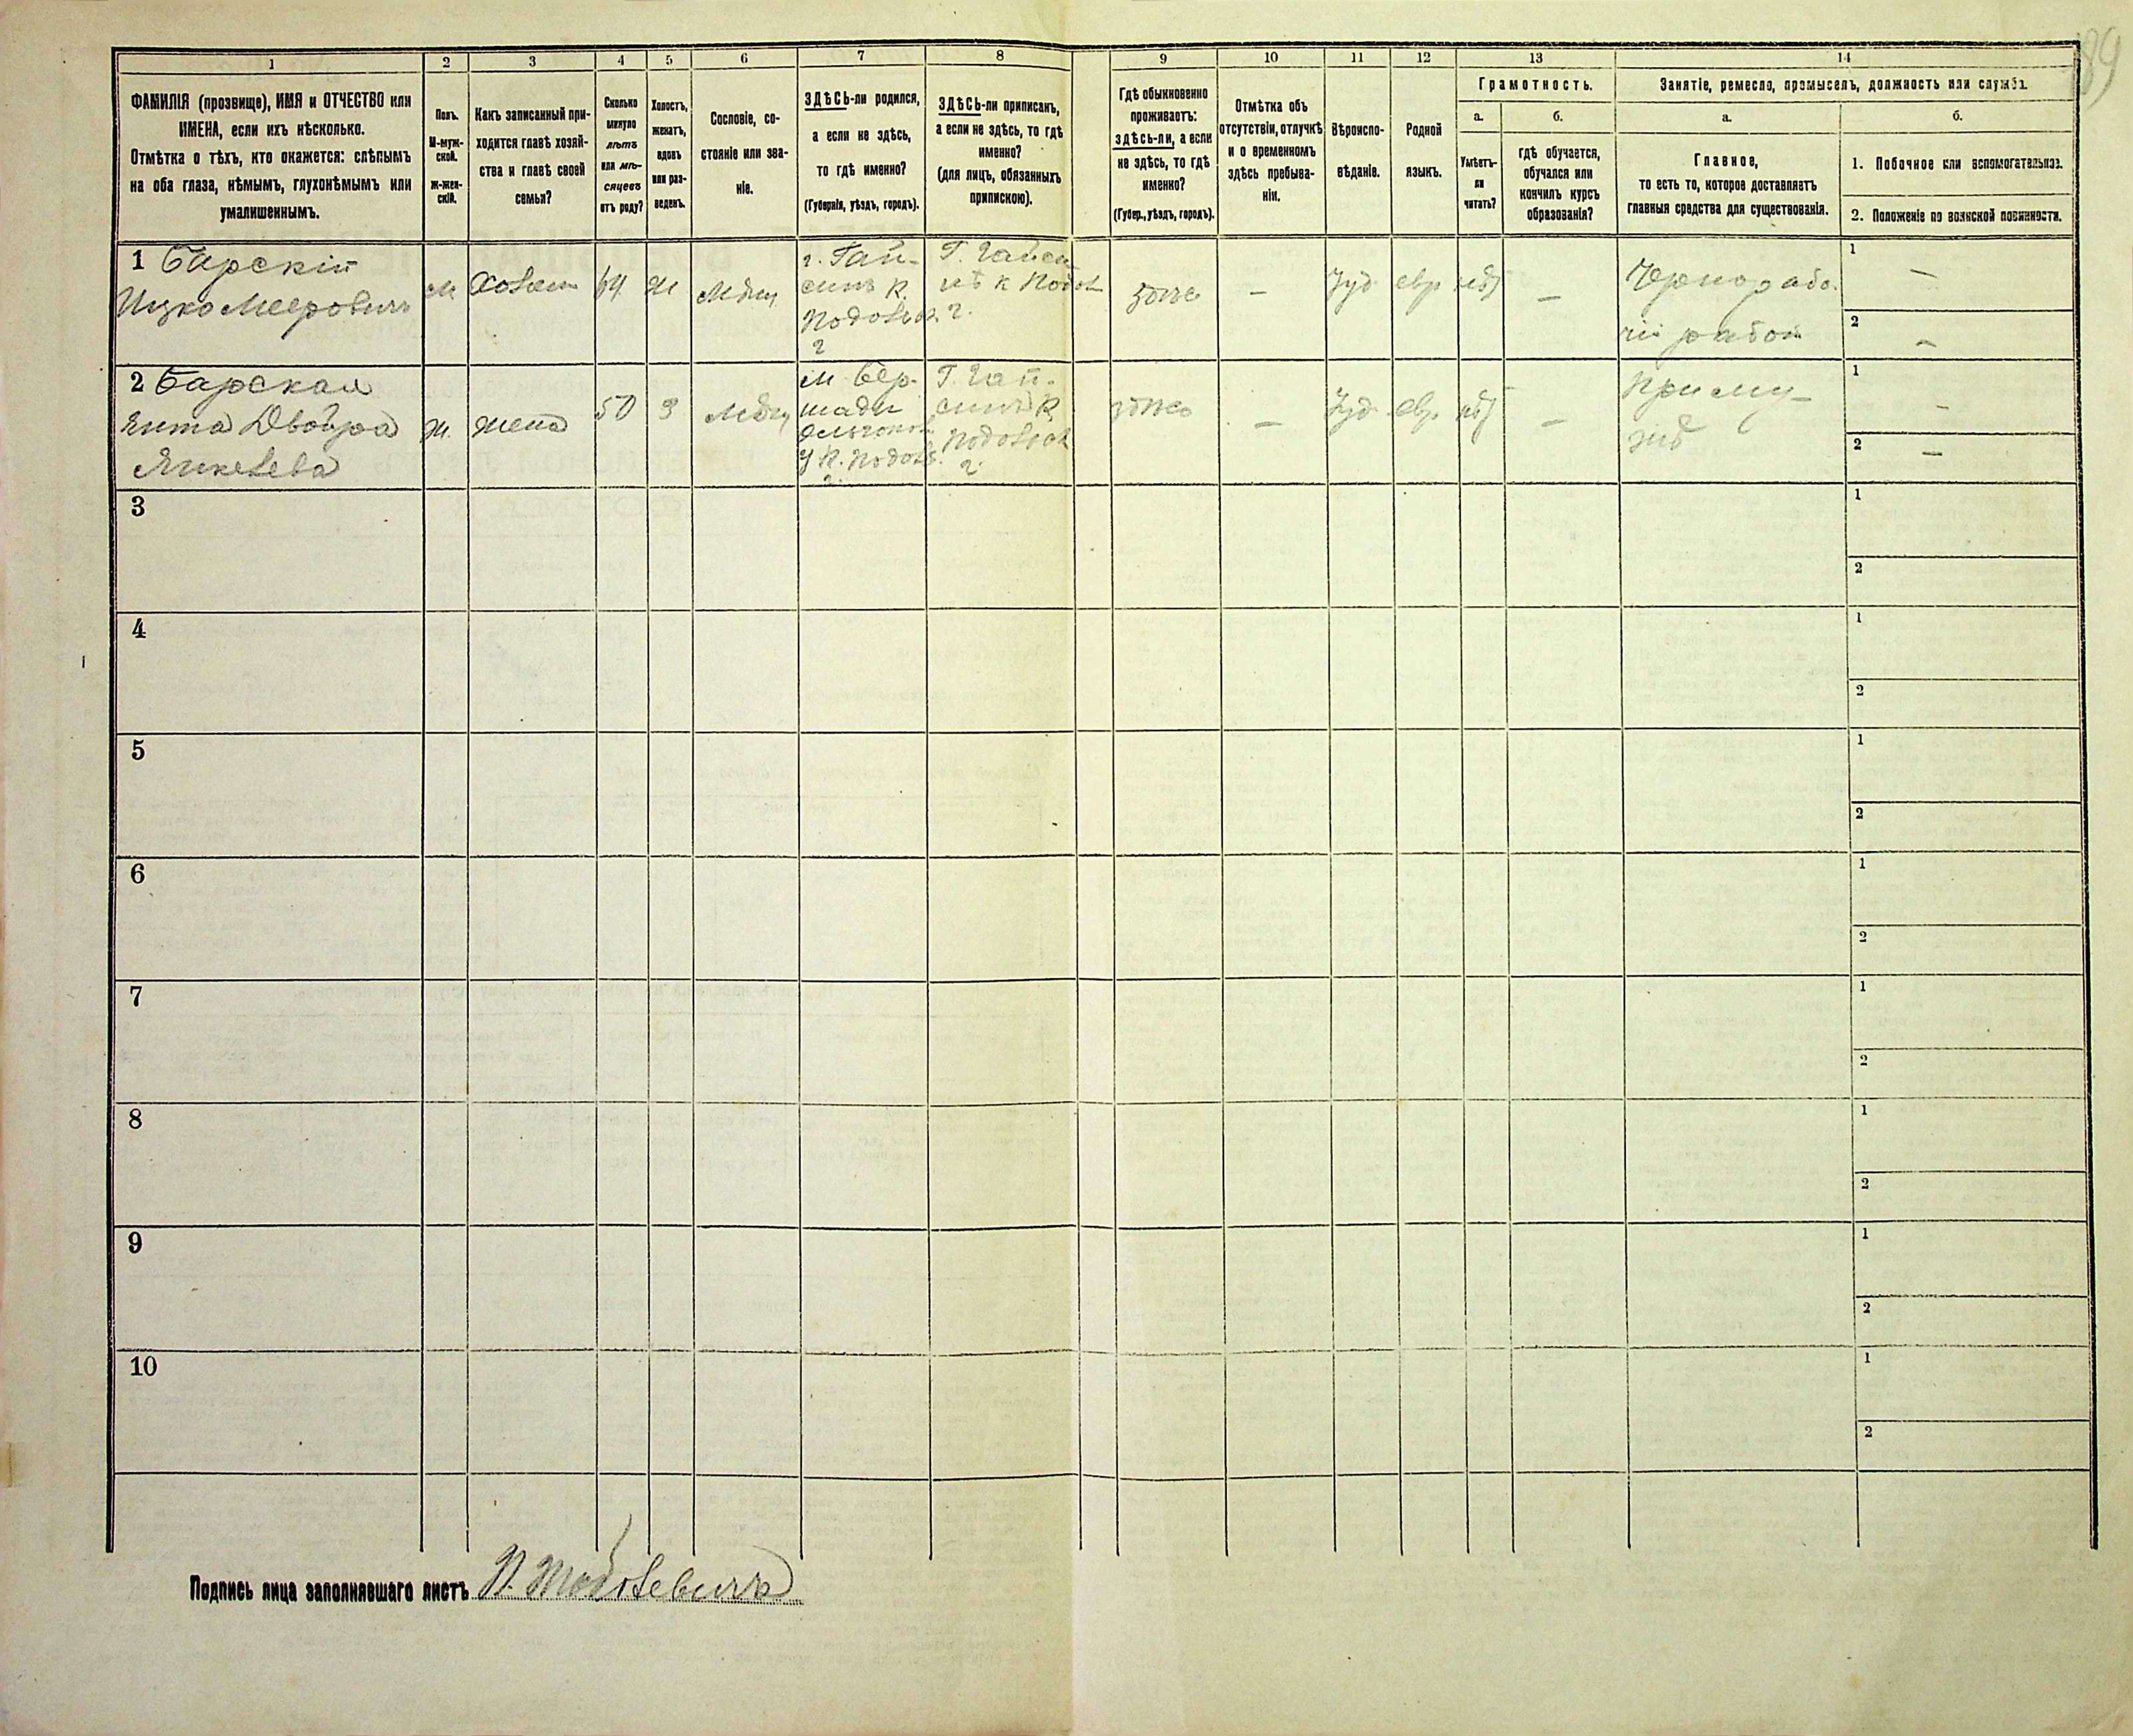 189
1
2
3
4
5
6
7
8
9
10
11
12
13
14
ФАМИЛІЯ (прозвище), ИМЯ и ОТЧЕСТВО или
ИМЕНА, если ихъ нѣсколько.
Отмѣтка о тѣхъ, кто окажется: слѣпымъ
на оба глаза, нѣмымъ, глухонѣмымъ или
умалишеннымъ.
Полъ.
М-муж-
ской.
Ж-жен-
скій.
Какъ записанный при-
ходится главѣ хозяй-
ства и главѣ своей
семьи?
Сколько
минуло
лѣтъ
или мѣ-
сяцевъ
отъ роду?
Холостъ,
женатъ,
вдовъ
или раз-
веденъ.
Сословіе, со-
стояніе или зва-
ніе.
ЗДѢСЬ-ли родился,
а если не здѣсь,
то гдѣ именно?
(Губернія, уѣздъ, городъ).
ЗДѢСЬ-ли приписанъ,
а если не здѣсь, то гдѣ
именно?
(для лицъ, обязанныхъ
припискою).
Гдѣ обыкновенно
проживаетъ:
здѣсь-ли, а если
не здѣсь, то гдѣ
именно?
(Губер., уѣздъ, городъ).
Отмѣтка объ
отсутствіи, отлучкѣ
и о временномъ
здѣсь пребыва-
ніи.
Вѣроиспо-
вѣданіе.
Родной
языкъ.
Грамотность.
а.
Умѣетъ-
ли
читать?
б.
гдѣ обучается,
обучался или
кончилъ курсъ
образованія?
Занятіе, ремесло, промыселъ, должность или служба.
а.
Главное,
то есть то, которое доставляетъ
главныя средства для существованія.
б.
1. Побочное или вспомогательное.
2. Положеніе по воинской повинности.
1 Барскій
Ицко Мееровичъ
м
Хозяин
64
ж
Мѣщ
г. Гай-
синъ К.
Подольск.
г
Г. Гайси
нѣ К Подол
г.
здѣсь
—
Іуд
евр
нѣт
—
Чернорабо-
чій работ
1
—
2
—
2 Барская
Ента Двойра
Янкелева
ж.
жена
50
З
Мѣщ
м. Бер-
шади
Ольгопол
у К. Подол.
г.
Г. Гай-
синѣ К
Подольск
г.
здѣсь
—
Іуд
евр.
нѣт
—
При му-
жѣ
1
—
2
—
3
1
2
4
1
2
5
1
2
6
1
2
7
1
2
8
1
2
9
1
2
10
1
2
Подпись лица заполнявшаго листъ